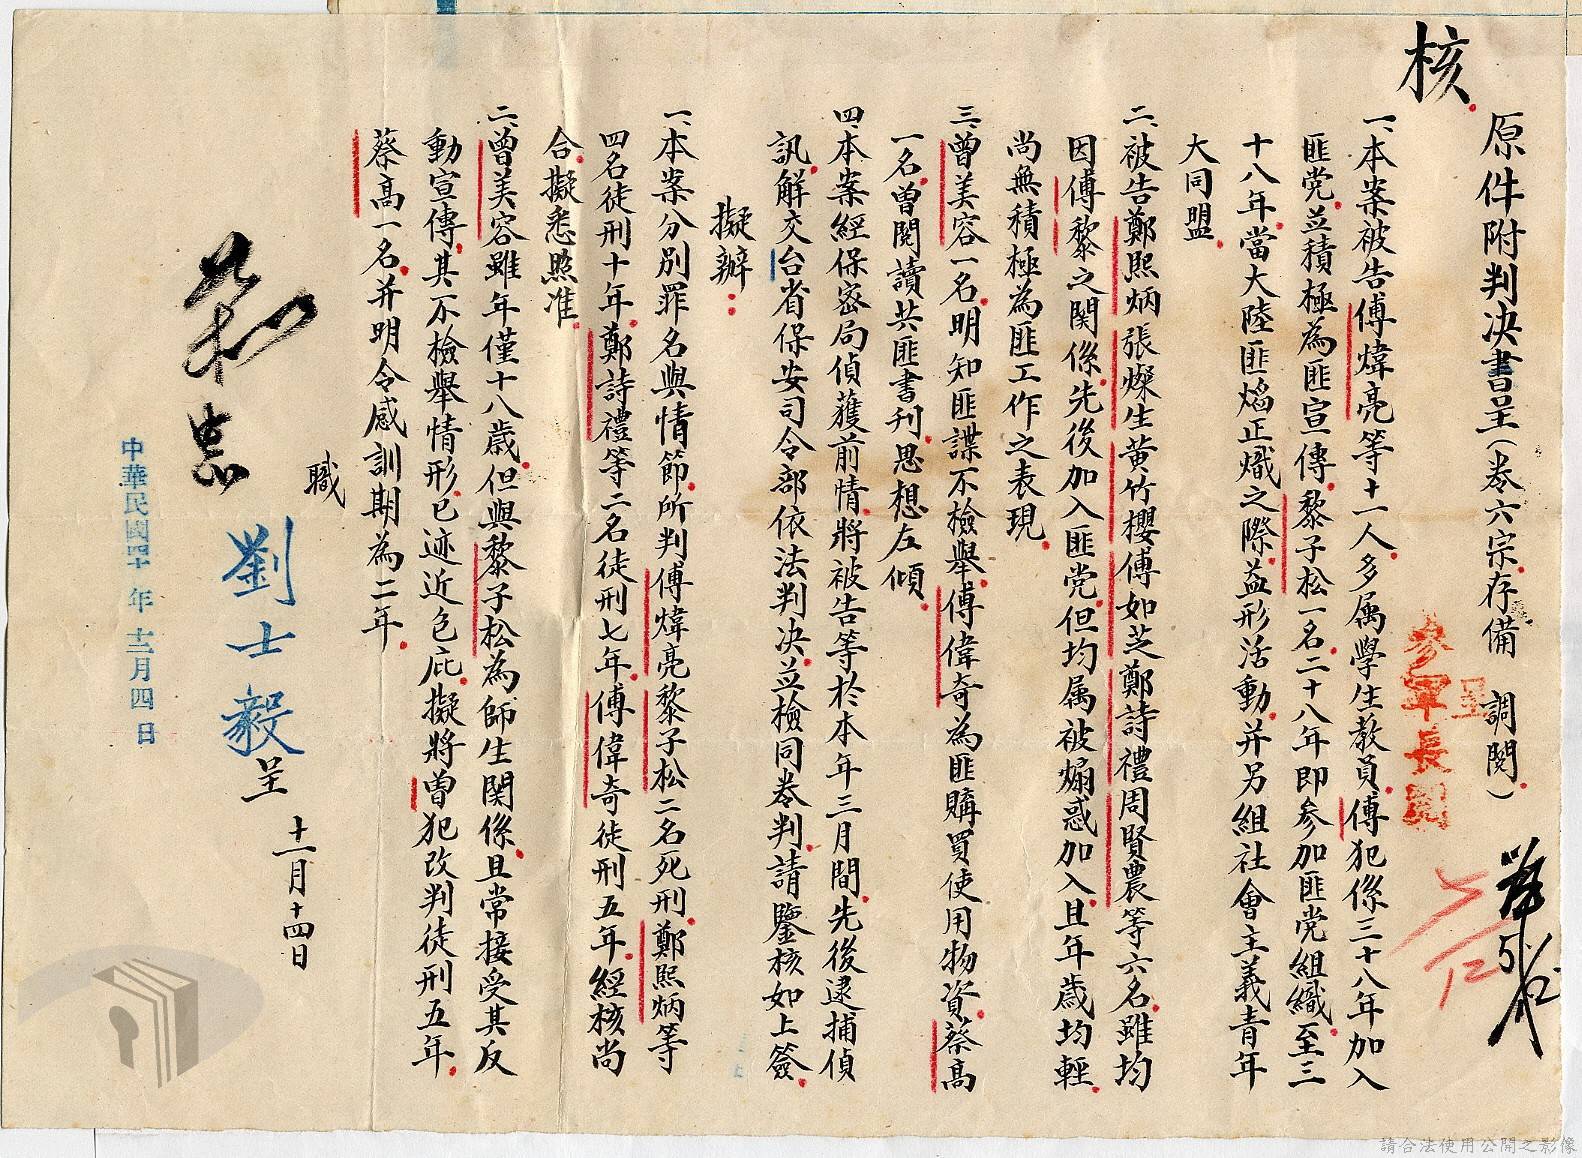 核
原件附判决書呈(卷六宗存備 調閱)
呈
參軍長閱
一、本案被告傅煒亮等十一人多属學生教員傅犯係三十八年加入
匪党並積極為匪宣傳黎子松一名二十八年即参加匪党組織至三
十八年當大陸匪燄正熾之際益形活動并另組社會主義青年
大同盟
二、被告鄭熙炳張燦生黄竹櫻傅如芝鄭詩禮周賢農等六名雖均
因傅黎之関係先後加入匪党但均属被煽惑加入且年歲均輕
尚無積極為匪工作之表現
三、曾美容一名明知匪諜不檢舉傅偉奇為匪購買使用物資蔡高
一名曾閱讀共匪書刊思想左傾
四、本案經保密局偵獲前情將被告等於本年三月間先後逮捕偵
訊解交台省保安司令部依法判决並檢同卷判請鑒核如上簽
擬辦：
一、本案分別罪名與情節所判傅煒亮黎子松二名死刑鄭熙炳等
四名徒刑十年鄭詩禮等二名徒刑七年傅偉奇徒刑五年經核尚
合擬悉照准
二、曾美容雖年僅十八歲但與黎子松為師生関係且常接受其反
動宣傳其不檢舉情形已迹近包庇擬將曾犯改判徒刑五年
蔡高一名并明令感訓期為二年
職
劉士毅呈 十一月十四日
中華民國四十年十二月四日
請合法使用公開之影像